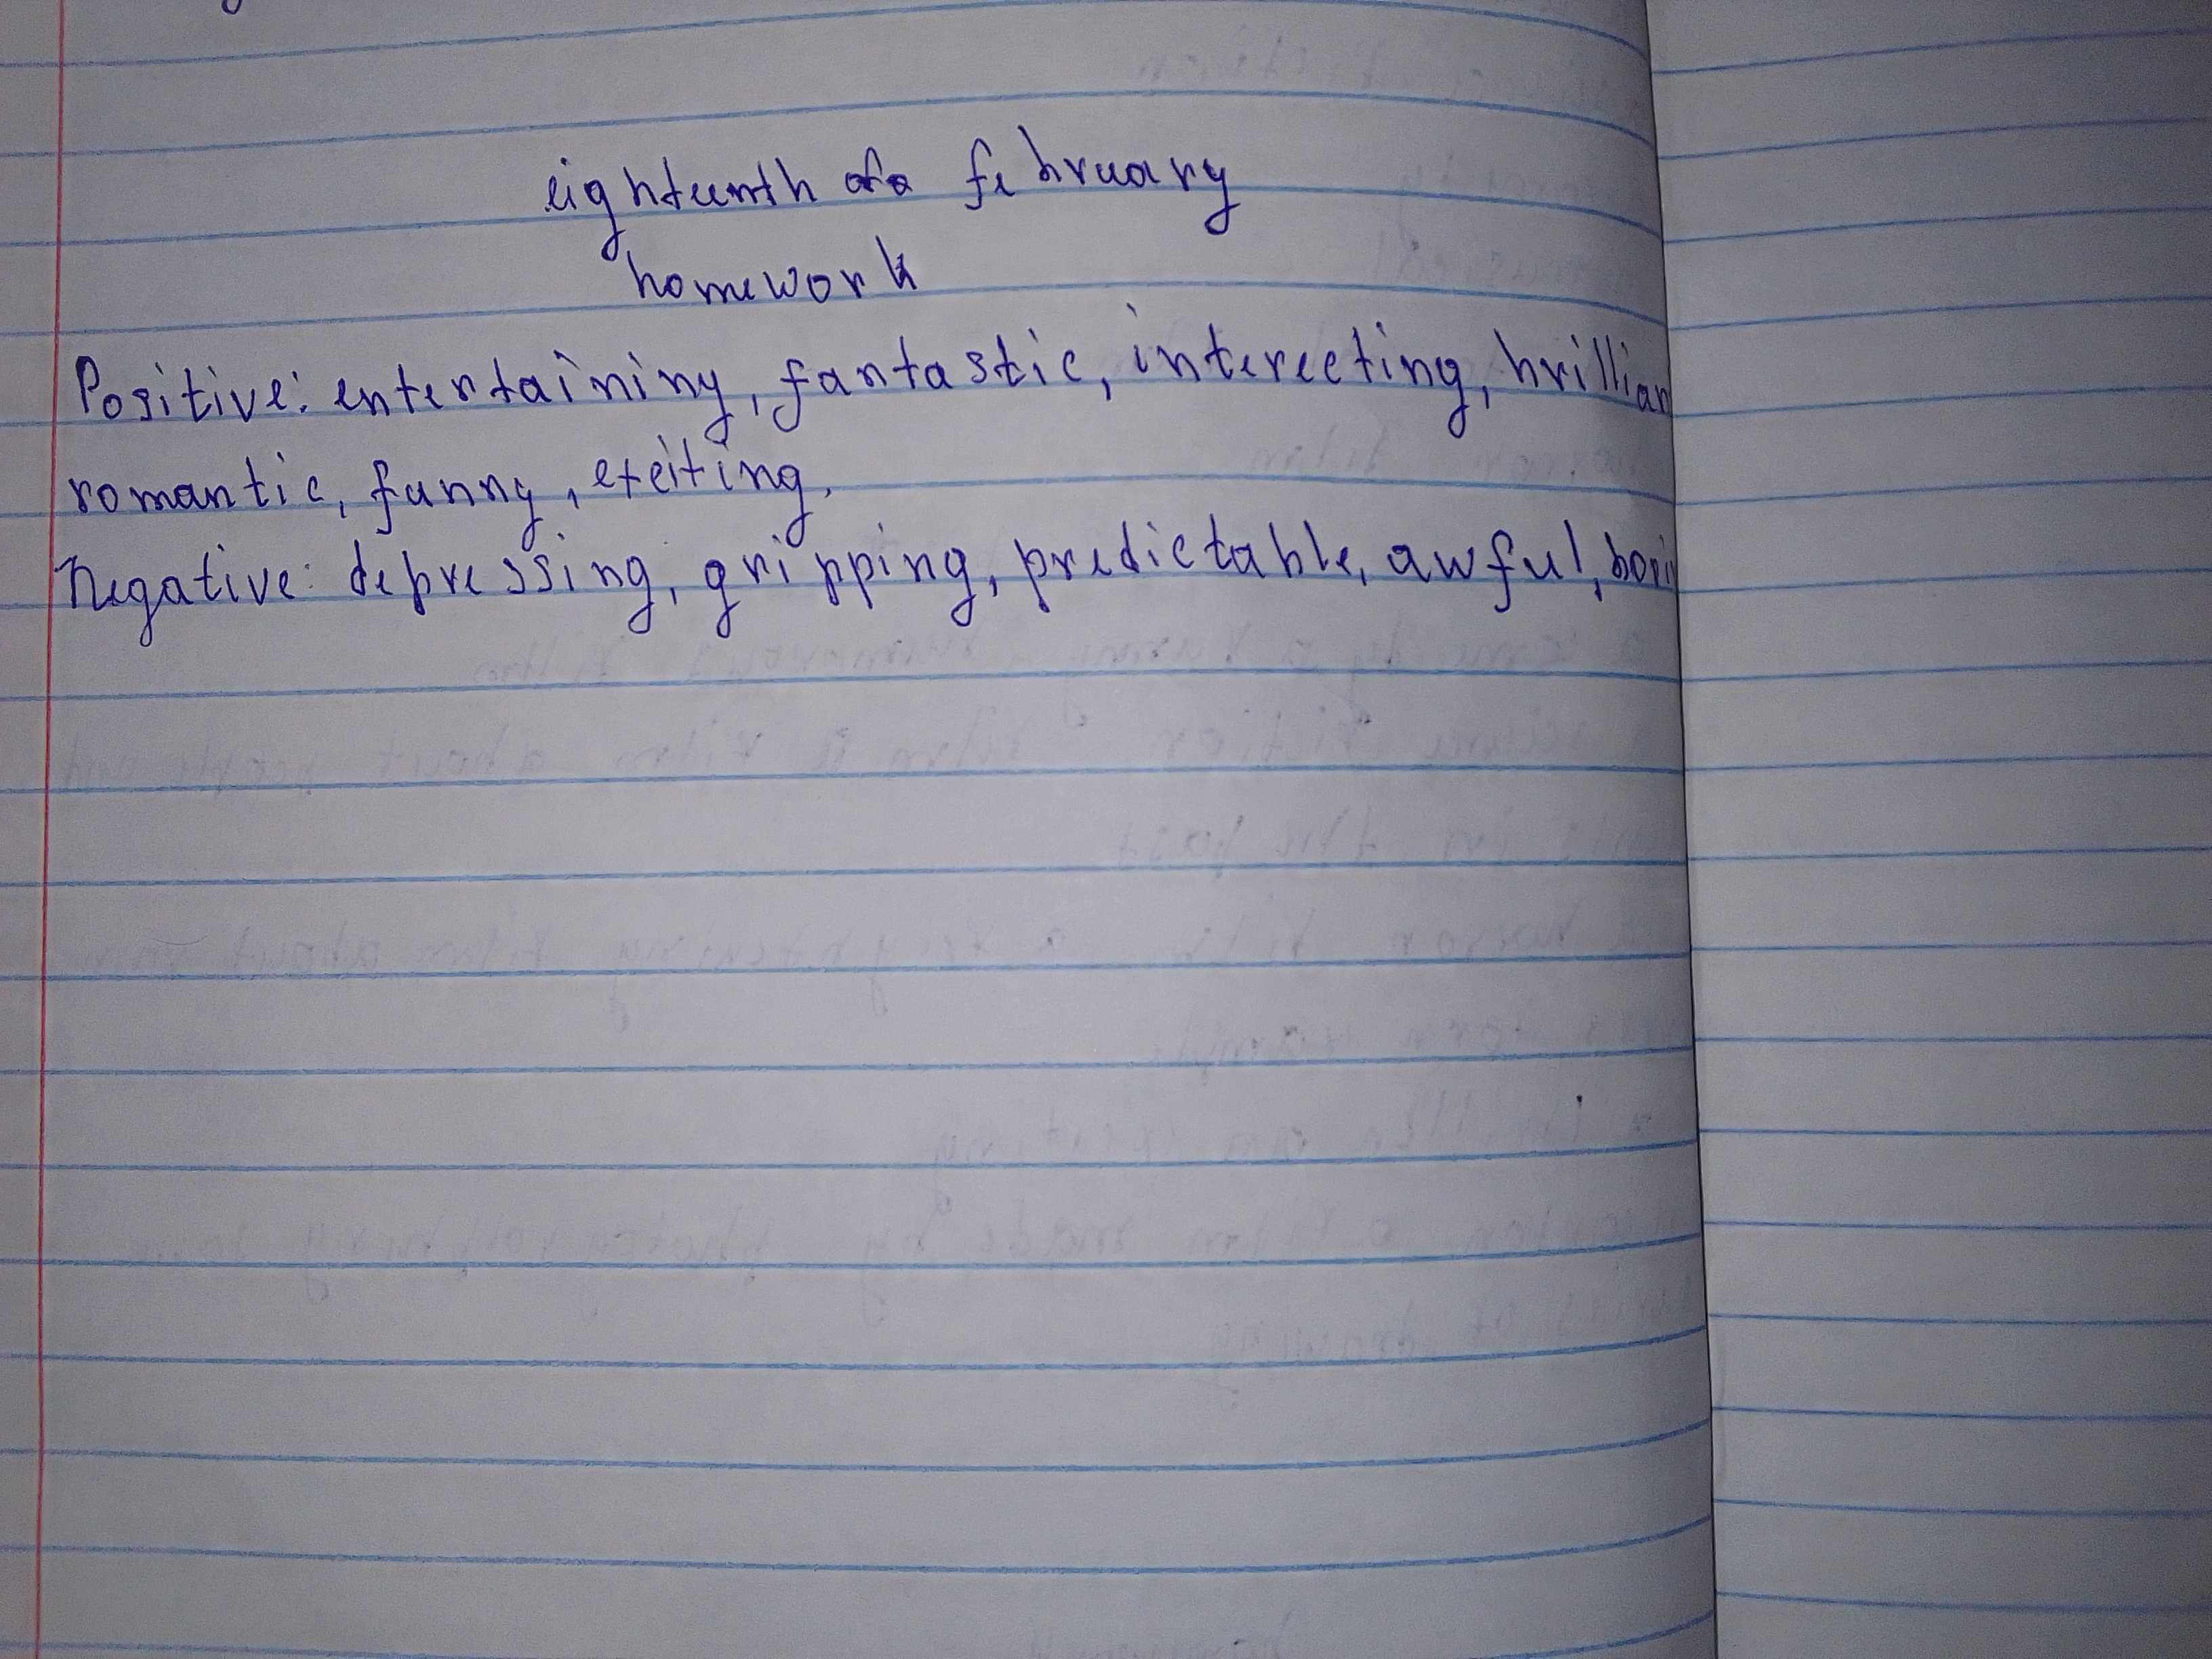 eighteenth of february
homework
Positive: entertaining, fantastic, interecting, brillian
romantic, funny, exciting,
negative: depressing, gripping, predictable, awful, bori